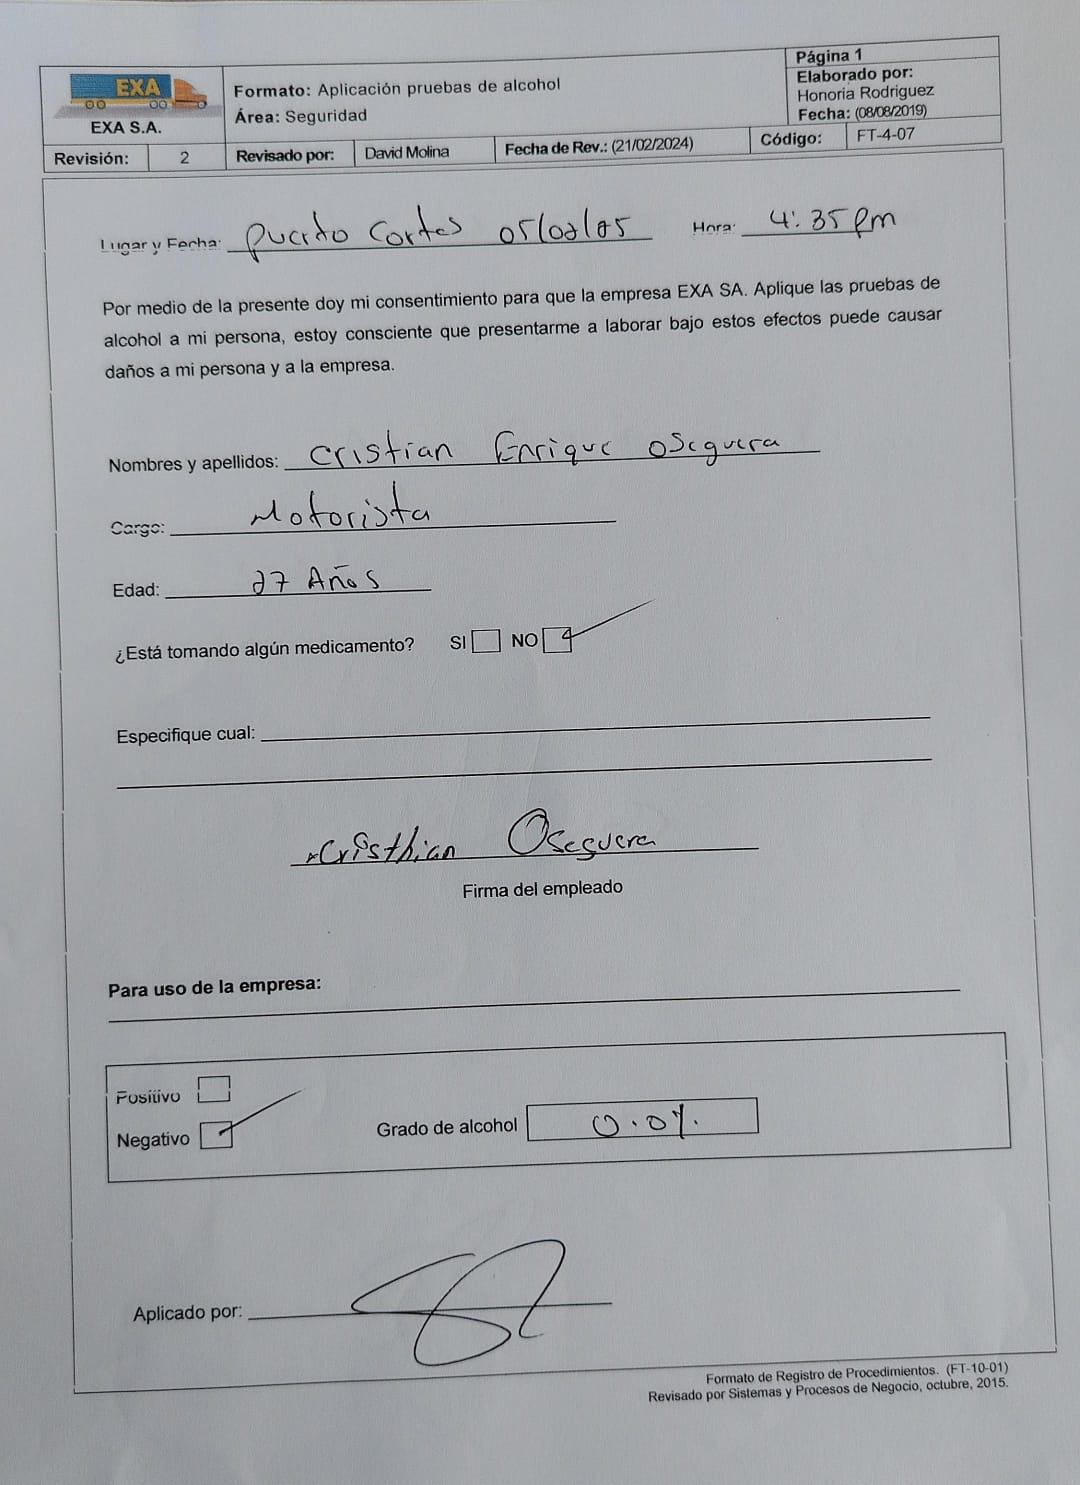 EXA
EXA S.A.
Formato: Aplicación pruebas de alcohol
Área: Seguridad
Página 1
Elaborado por:
Honoria Rodriguez
Fecha: (08/08/2019)
Revisión: 2 Revisado por: David Molina Fecha de Rev.: (21/02/2024) Código: FT-4-07
Lugar y Fecha: Puerto Cortes Hora: 4:35 Pm
Por medio de la presente doy mi consentimiento para que la empresa EXA SA. Aplique las pruebas de
alcohol a mi persona, estoy consciente que presentarme a laborar bajo estos efectos puede causar
daños a mi persona y a la empresa.
Nombres y apellidos: Cristian Enrique Oseguera
Cargo: Motorista
Edad: 27 Años
¿Está tomando algún medicamento? SI NO
Especifique cual:
Cristhian Oseguera
Firma del empleado
Para uso de la empresa:
Positivo
Negativo
Grado de alcohol 0.0%.
Aplicado por:
Formato de Registro de Procedimientos. (FT-10-01)
Revisado por Sistemas y Procesos de Negocio, octubre, 2015.